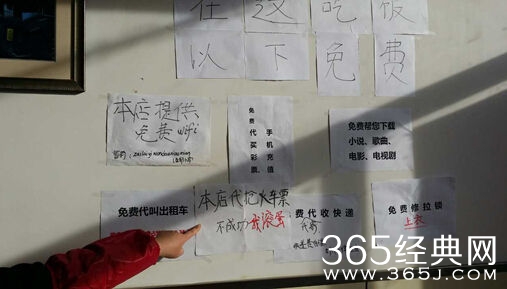 在这吃饭
以下免费
本店提供
免费wifi
免费
代买彩票
手机充值
免费帮您下载
小说、歌曲、
电影、电视剧
免费代叫出租车
本店代抢火车票
不成功我滚蛋
费代收快递
免费修拉锁
上衣
365经典网
WWW.365J.COM